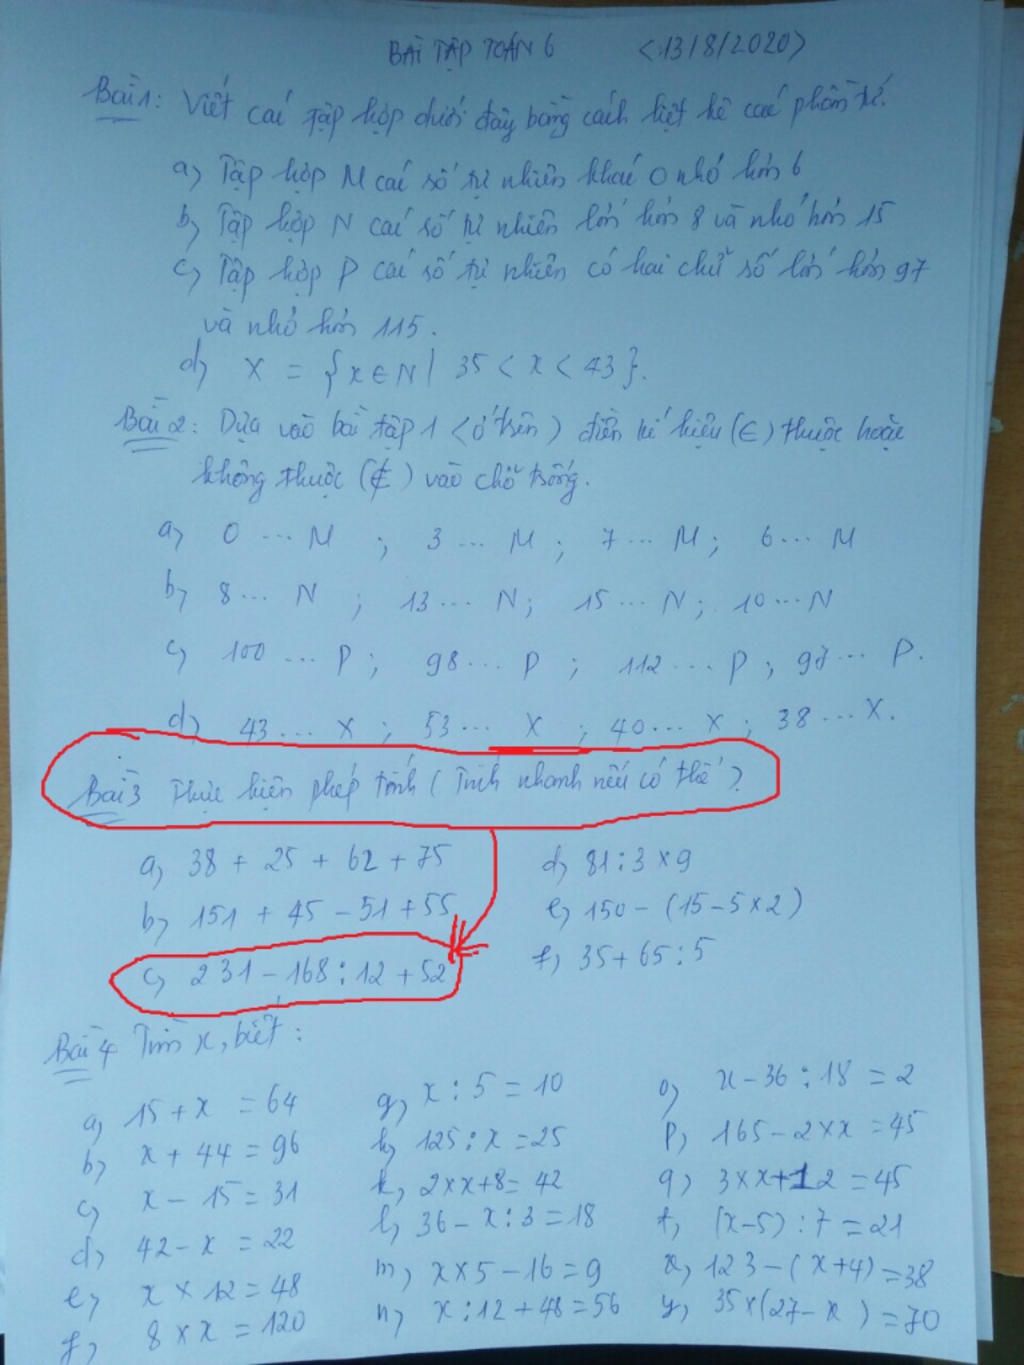 BÀI TẬP TOÁN 6 <13/8/2020>
Bài 1: Viết các tập hợp dưới đây bằng cách liệt kê các phần tử.
a) Tập hợp M các số tự nhiên khác 0 nhỏ hơn 6
b) Tập hợp N các số tự nhiên lớn hơn 8 và nhỏ hơn 15
c) Tập hợp P các số tự nhiên có hai chữ số lớn hơn 97
và nhỏ hơn 115.
d) X = {x ∈ N | 35 < x < 43}.
Bài 2: Dựa vào bài tập 1 <ở trên) điền kí hiệu (∈) thuộc hoặc
không thuộc (∉) vào chỗ trống.
a) 0 ... M ; 3 ... M ; 7 ... M ; 6 ... M
b) 8 ... N ; 13 ... N ; 15 ... N ; 10 ... N
c) 100 ... P ; 98 ... P ; 112 ... P ; 97 ... P.
d) 43 ... X ; 53 ... X ; 40 ... X ; 38 ... X.
Bài 3 Thực hiện phép tính ( Tính nhanh nếu có thể ?
a) 38 + 25 + 62 + 75 d) 81 : 3 x 9
b) 151 + 45 - 51 + 55 e) 150 - (15 - 5 x 2)
c) 231 - 168 : 12 + 52 f) 35 + 65 : 5
Bài 4 Tìm x, biết :
a) 15 + x = 64 g) x : 5 = 10 o) x - 36 : 18 = 2
b) x + 44 = 96 h) 125 : x = 25 p) 165 - 2 x x = 45
c) x - 15 = 31 k) 2 x x + 8 = 42 q) 3 x x + 12 = 45
d) 42 - x = 22 l) 36 - x : 3 = 18 t) (x - 5) : 7 = 21
e) x x 12 = 48 m) x x 5 - 16 = 9 x) 123 - ( x + 4) = 38
f) 8 x x = 120 n) x : 12 + 48 = 56 y) 35 x (27 - x ) = 70